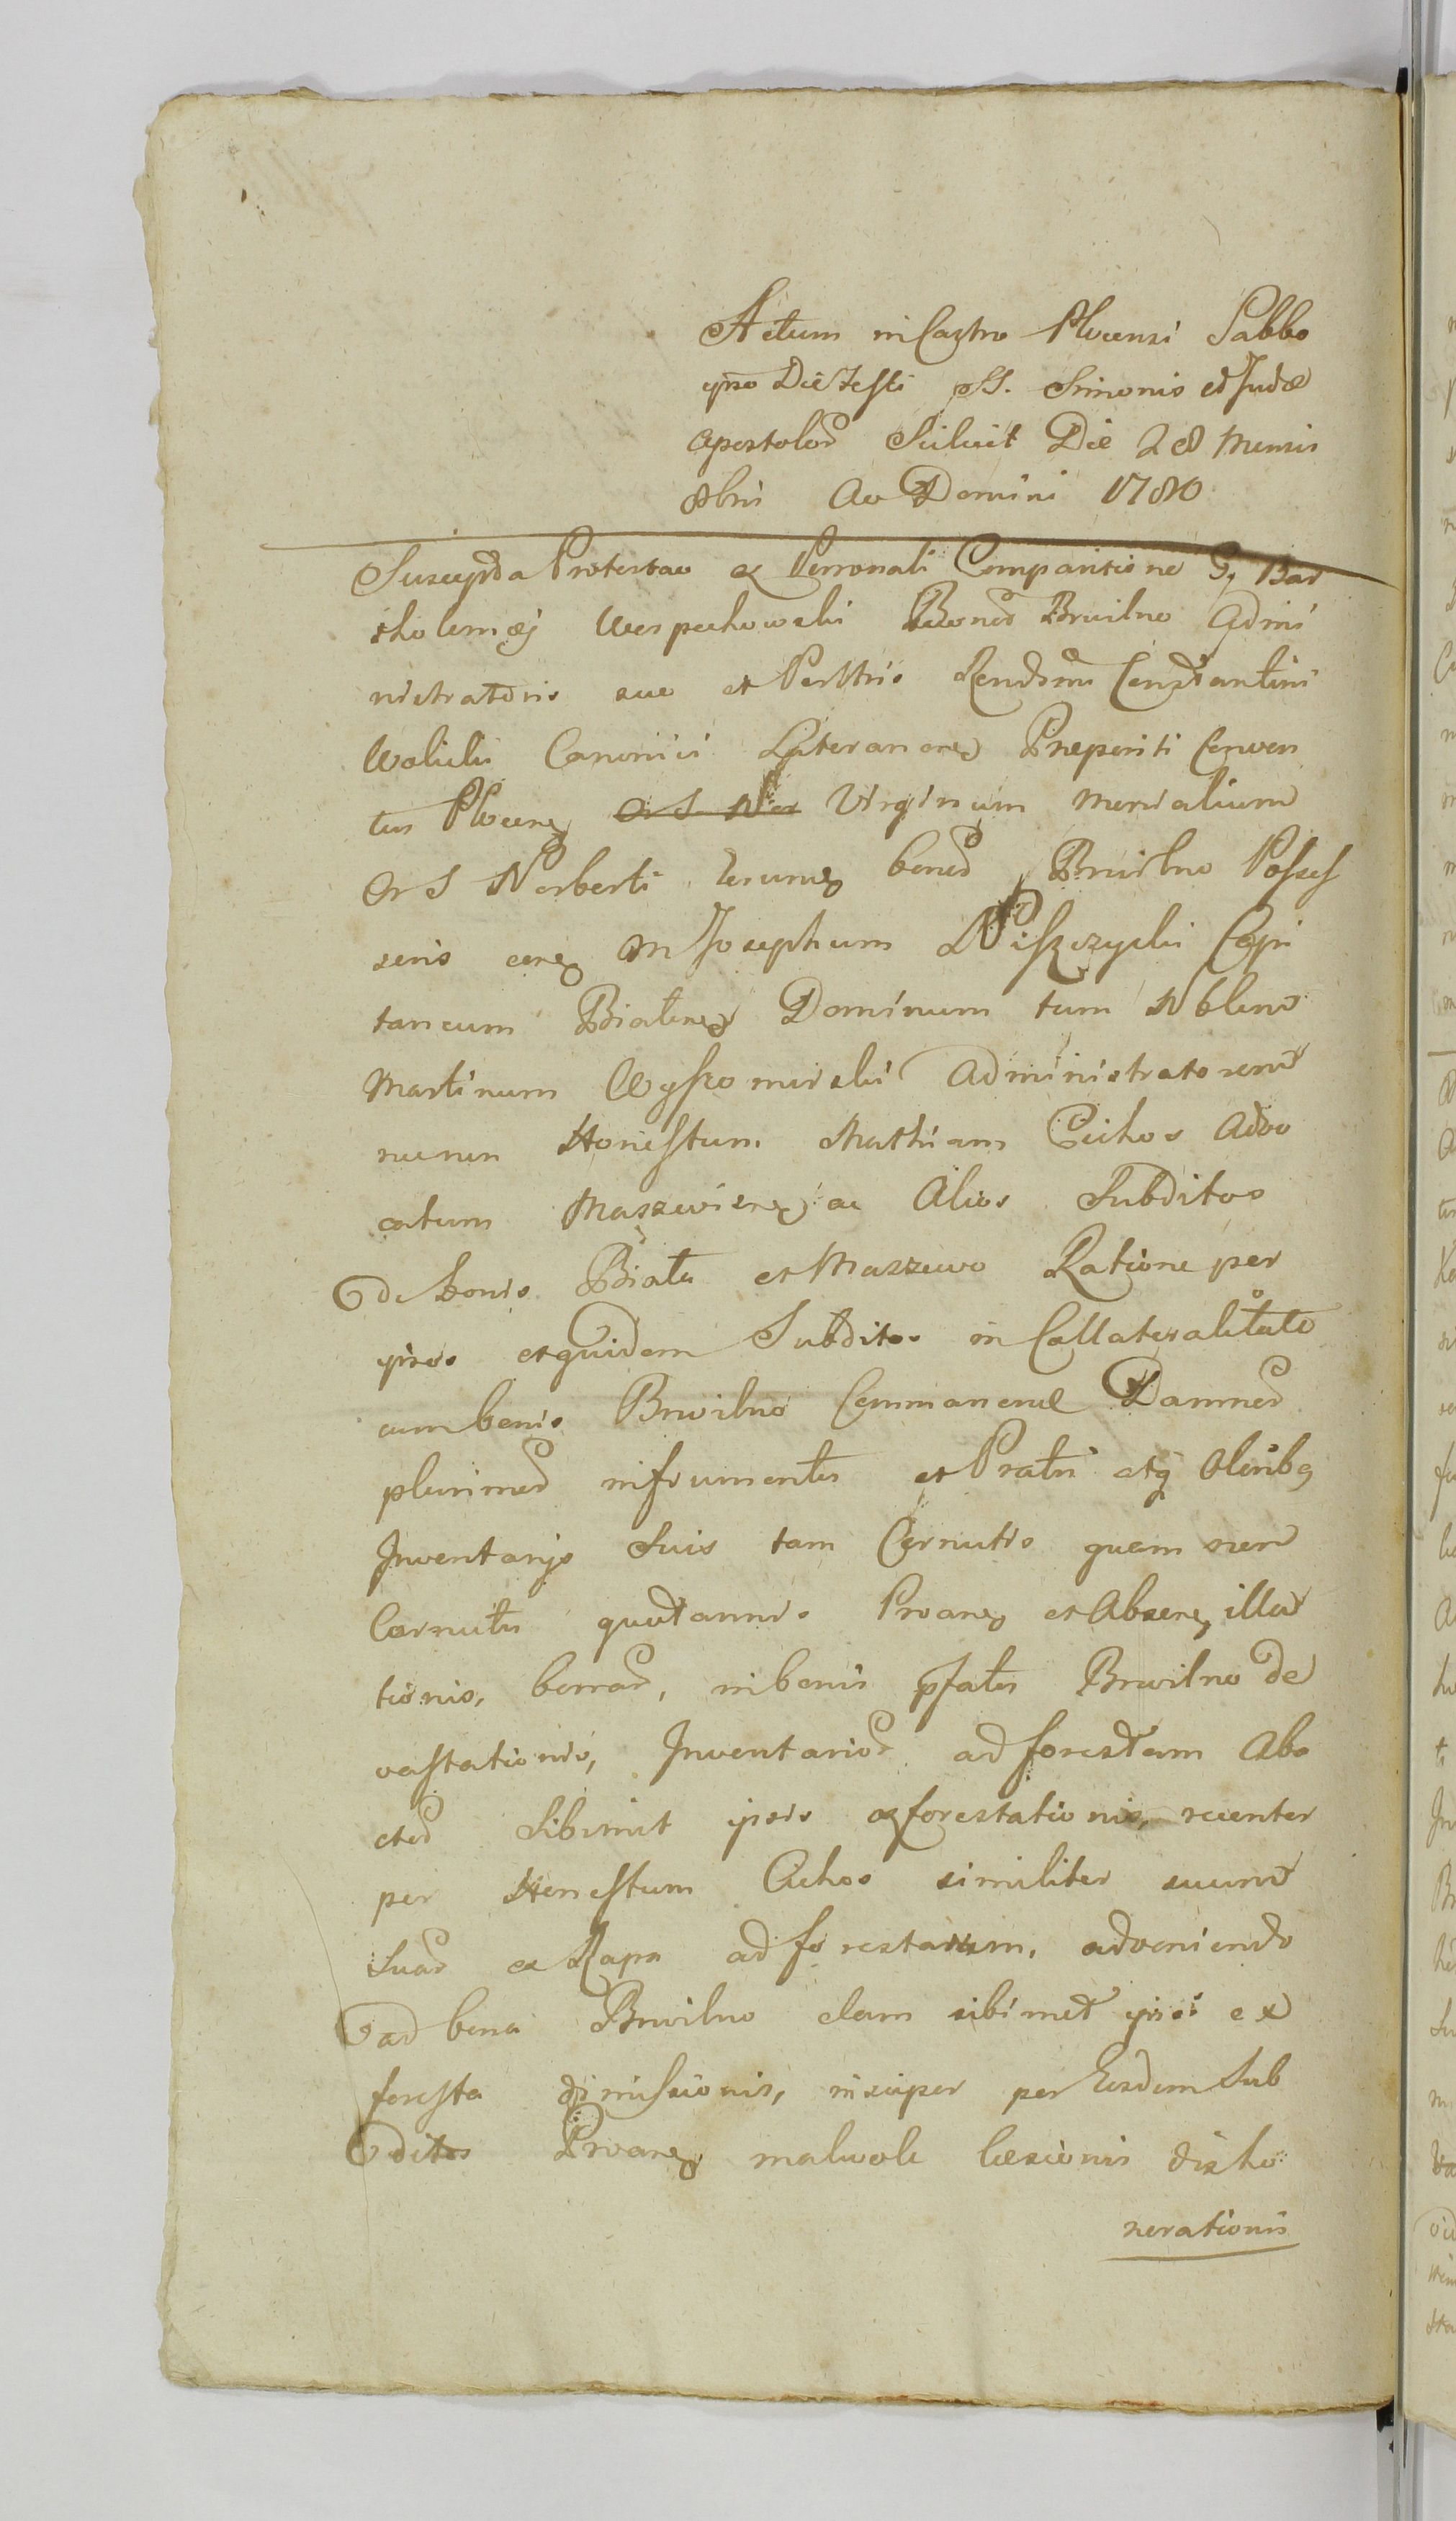 Actum in Castro Plocensi Sabbo
ipso Die Festi SS. Simonis et Judæ
Apostolor Scilicet Die 28 Mensis
8bris Ao Domini 1780
Suscepta Protestao ex Personali Comparitione G, Bar
tholemæj Bonor Brwilno Admi
nistratoris suo et Perlltris Rendsmi Constantini
Wolicki Canonici Lateranens Præpositi Conven
tus Plocens Or S Nor Virginum Monialium
Or S Norberti bonor Brwilno Posses
soris M Josephum Piszczycki Capi
taneum Bialens Dominum tum Nblem
Martinum Wyszomirski Administratorem
necnon Honestum Mathiam Cichos Advo
catum Maszewiens ac Alios Subditos
de bonis Biała et Maszewo Ratione per
ipsos et quidem Subditos in Collateralitate
cum bonis Brwilno Commanen Damnor
plurimor in frumentis et Pratis atq Oleribq
Inventarijs Suis tam Cornutis quam non
Cornutis quotannis et illa
tionis, borrar, in bonis pfatis Brwilno de
vastationis, Inventarior ad forestam Aba
ctor Sibimet ipsis exforestationis, recenter
per Honestum Cichos similiter suum
Suar ex Rapa adforestatarum, adveniendo
ad bona Brwilno clam sibimet ipsi ex
foresta dimissionis, insuper per Eosdem Sub
ditos malevole læsionis disho
norationis